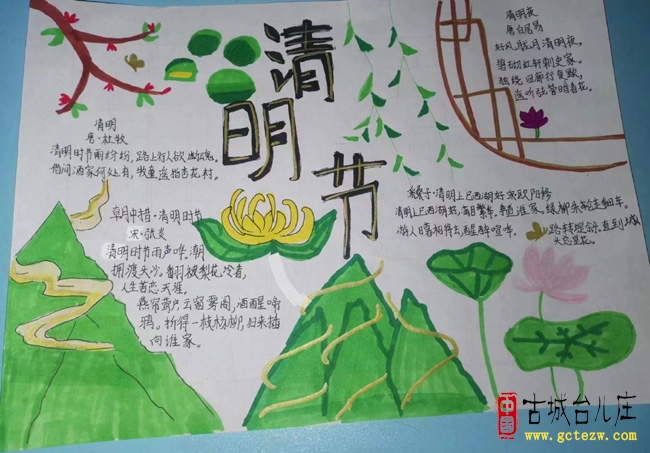 清明节
清明
唐·杜牧
清明时节雨纷纷,路上行人欲断魂。
借问酒家何处有,牧童遥指杏花村。
朝中措·清明时节
宋·张炎
清明时节雨声哗,潮
拥渡头沙。翻被梨花冷看,
人生苦恋天涯。
燕帘莺户,云窗雾阁,酒醒啼
鸦。折得一枝杨柳,归来插
向谁家。
清明夜
唐白居易
好风胧月清明夜,
碧砌红轩刺史家。
独绕回廊行复歇,
遥听弦管暗看花。
采桑子·清明上巳西湖好 宋欧阳修
清明上巳西湖好,满目繁华。争道谁家,绿柳朱轮走钿车。
游人日暮相将去,醒醉喧哗。
路转堤斜,直到城
头总是花。
中国
古城台儿庄
www.gctezw.com